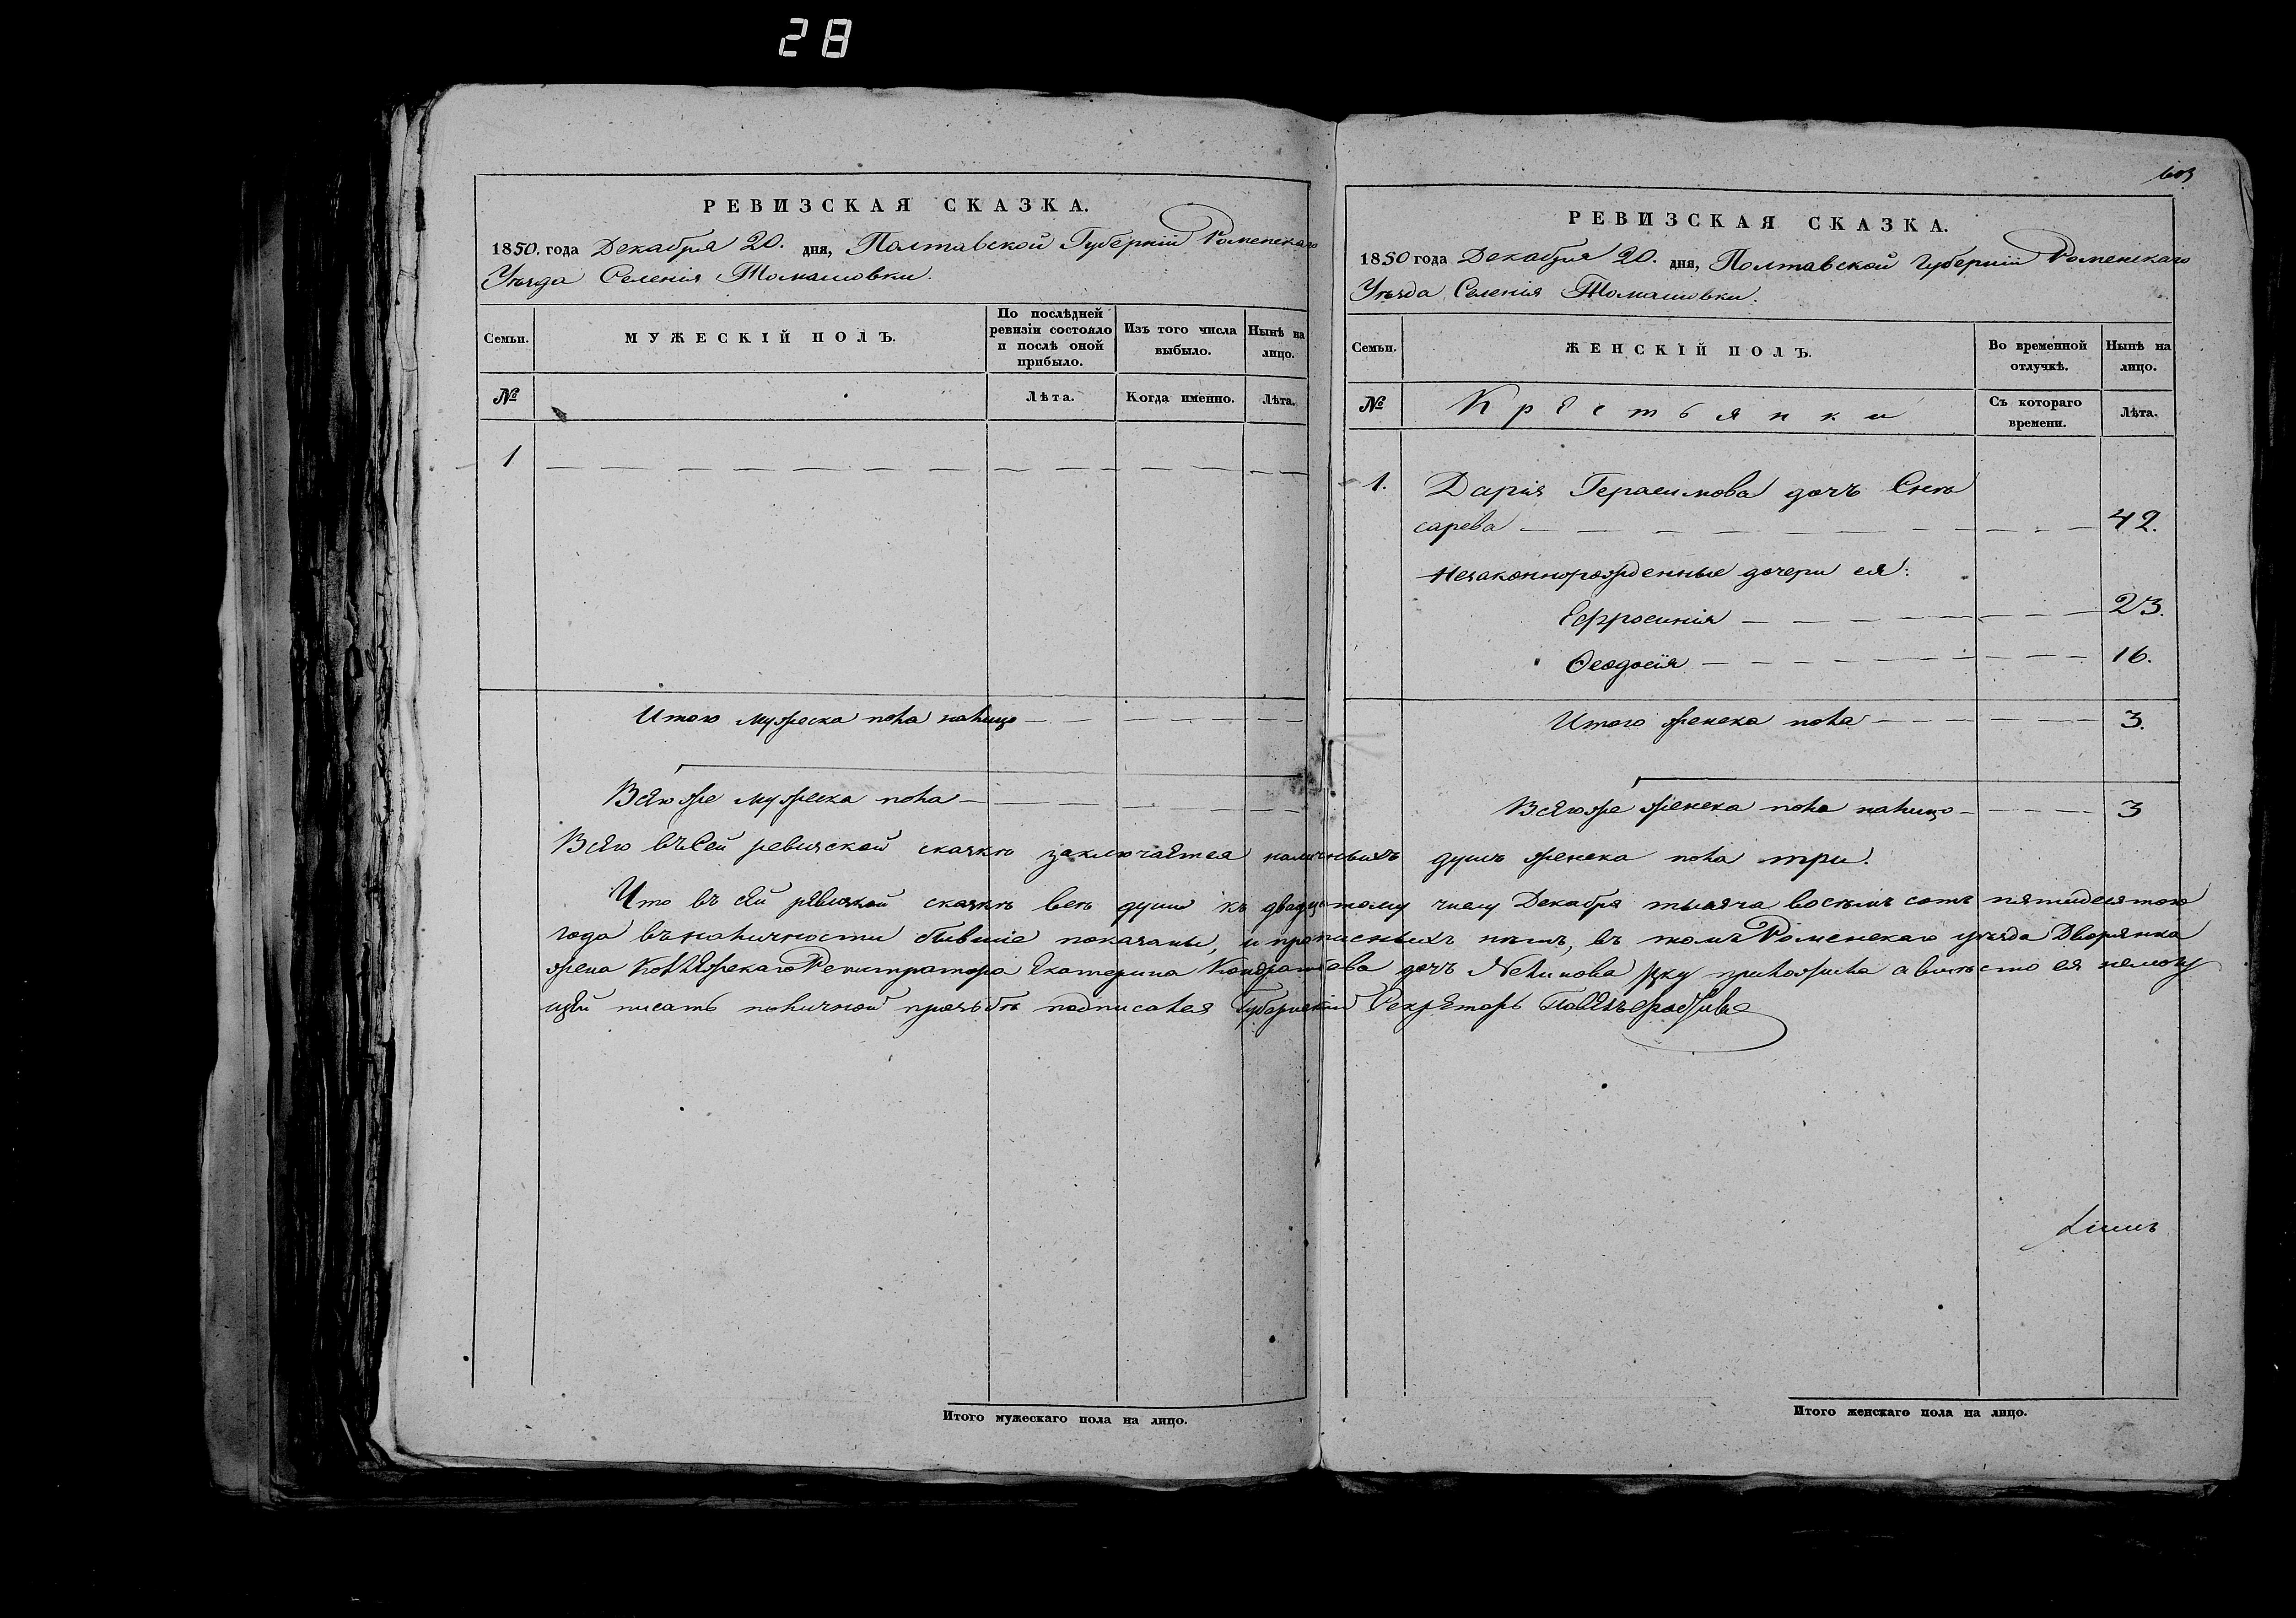 28
РЕВИЗСКАЯ СКАЗКА.
1850. года Декабря 20. дня, Полтавской Губерніи Роменскаго
Уѣзда Селенія Томашовки.
Семьи.
МУЖЕСКІЙ ПОЛЪ.
По послѣдней ревизіи состояло и послѣ оной прибыло.
Изъ того числа выбыло.
Нынѣ на лицо.
№
Лѣта.
Когда именно.
Лѣта.
1
Итого мужеска пола налицо
Всего же мужеска пола
РЕВИЗСКАЯ СКАЗКА.
1850 года Декабря 20. дня, Полтавской Губерніи Роменскаго
Уѣзда Селенія Томашовки.
Семьи.
ЖЕНСКІЙ ПОЛЪ.
Во временной отлучкѣ.
Нынѣ на лицо.
№
Крестьянки
Съ котораго времени.
Лѣта.
1. Дарія Герасимова дочь
сарева 42.
Незаконнорожденные дочери ея:
Ефросинія 23.
Ѳеодосія 16.
Итого женска пола 3.
Всего же женска пола налицо 3
Всего въ сей ревизской сказкѣ заключается наличныхъ душъ женска пола три.
Что въ сей ревизской сказкѣ всѣ души къ двадцатому числу Декабря тысяча восемь сотъ пятидесятого
года въ наличности бывшіе показаны, и прописныхъ нѣтъ, въ томъ Роменскаго уѣзда Дворянка
жена Коллежскаго Регистратора Екатерина Кондратьева дочь руку приложила а вместо ея немогу
щей писать по личной прозьбѣ подписался Губернскій Секретарь
Итого мужескаго пола на лицо.
Итого женскаго пола на лицо.